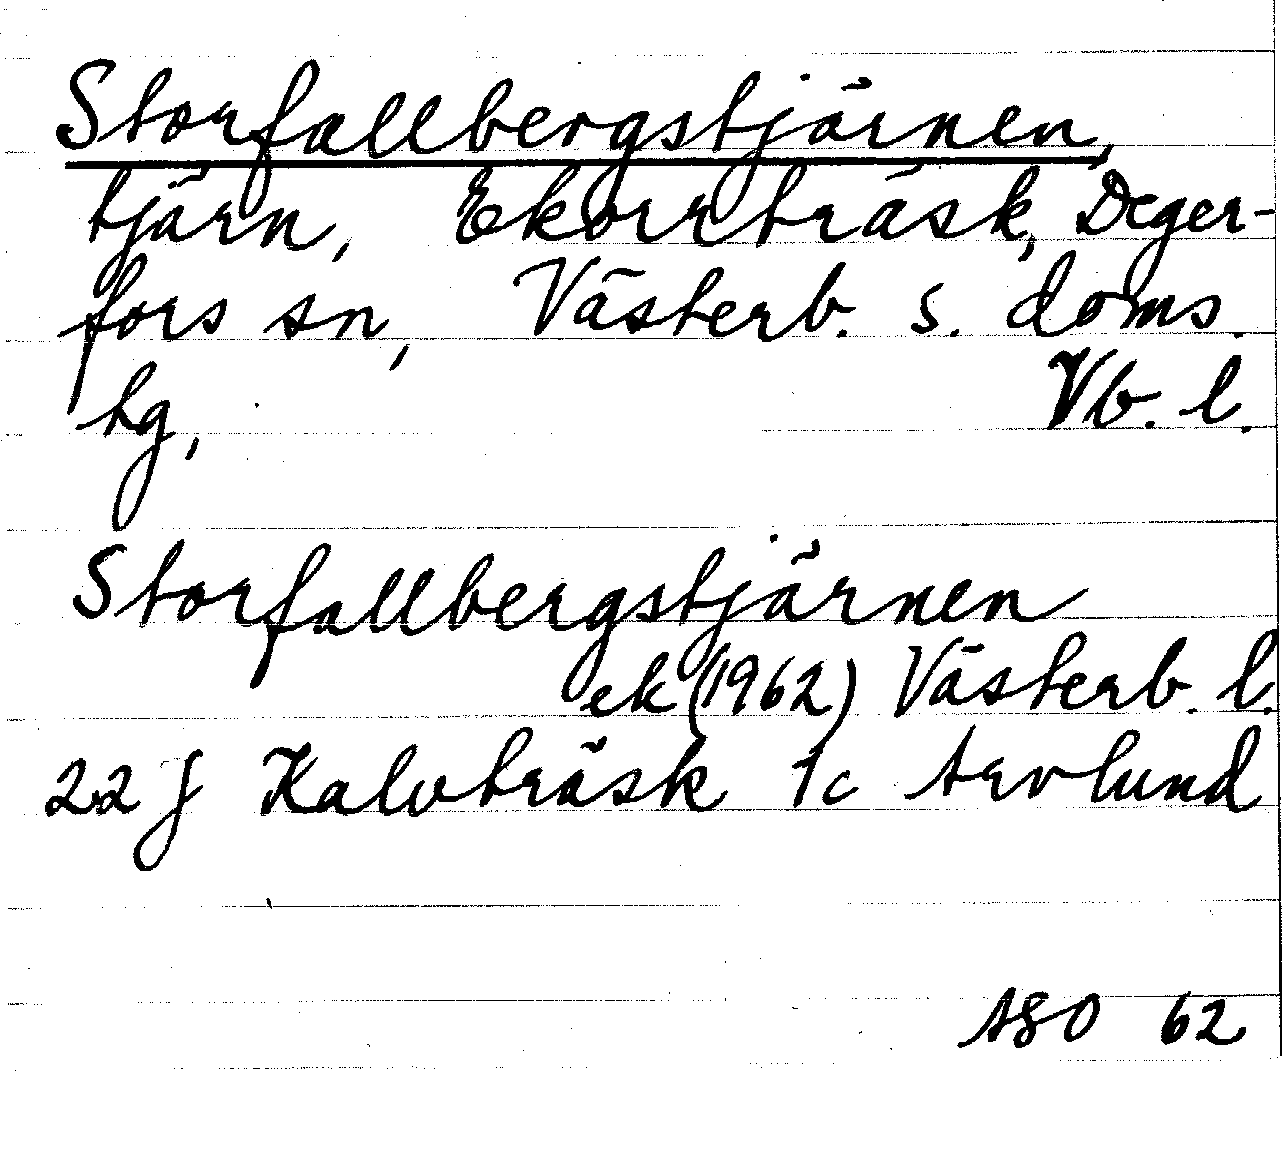 Storfallbergstjärnen,
tjärn, Ekorrträsk, Deger-
fors sn, Västerb. s. doms.
hg, Vb. l.
Storfallbergstjärnen
ek (1962) Västerb. l.
22 J Kalvträsk 1c Arvlund
ASO 62